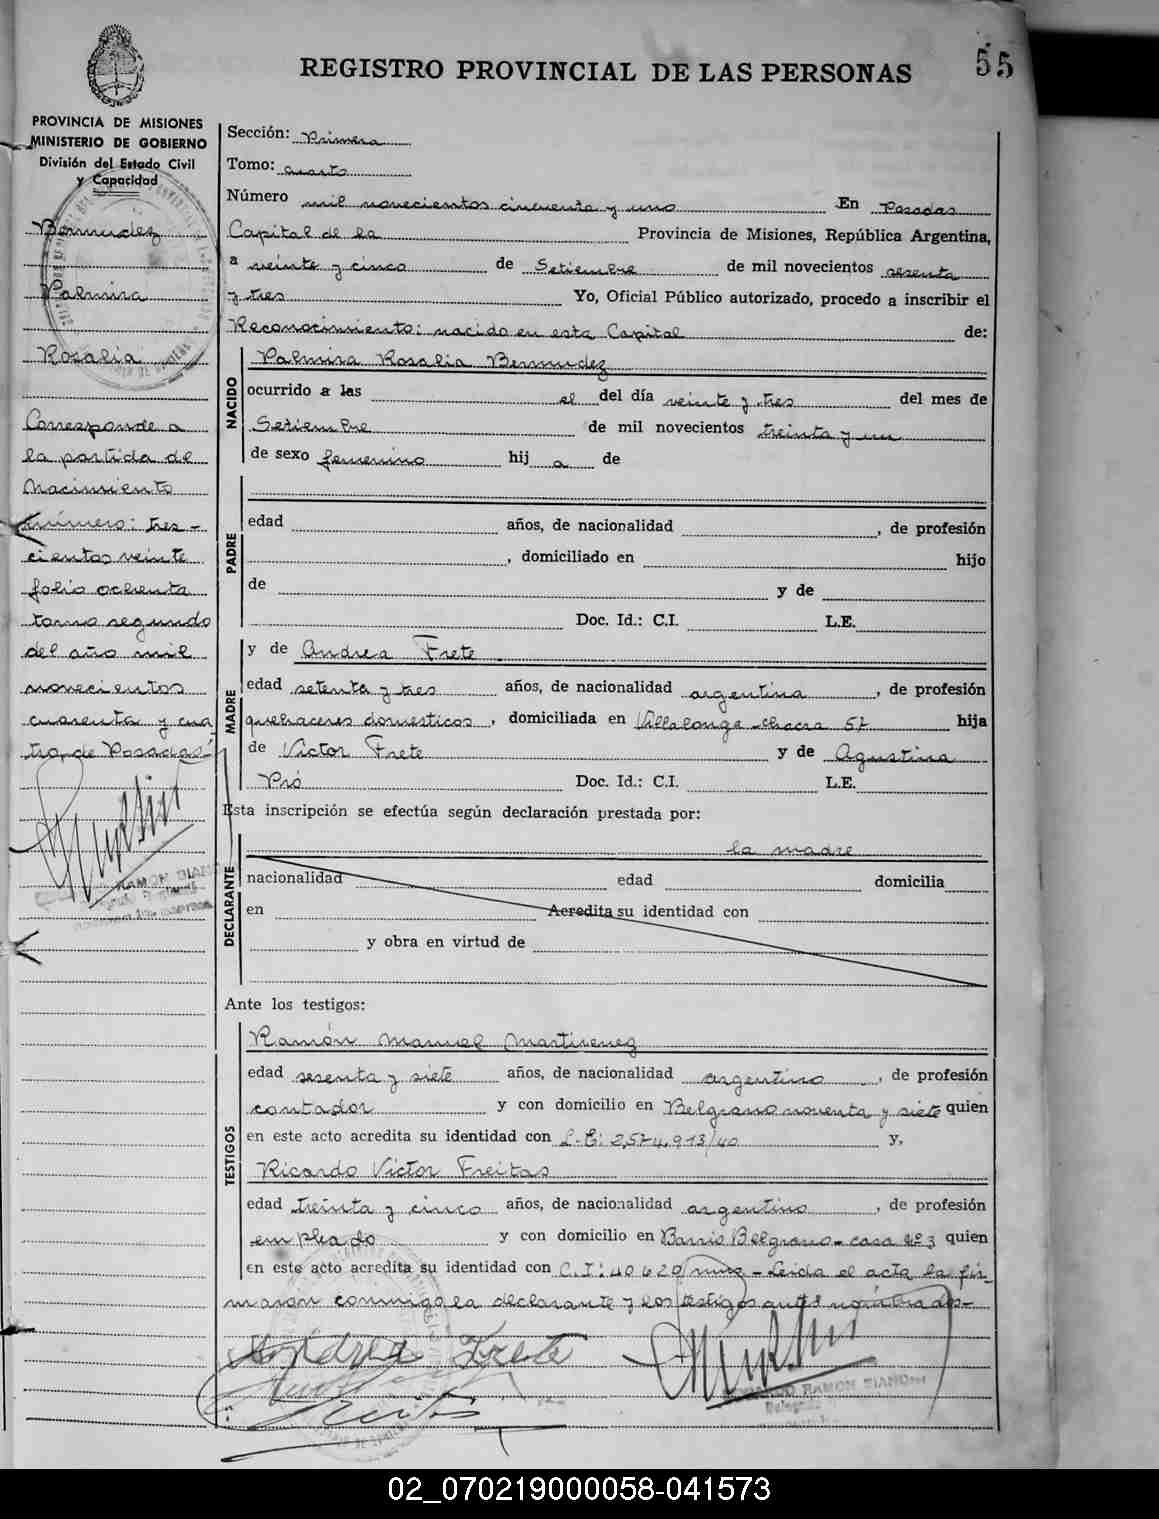 REGISTRO PROVINCIAL DE LAS PERSONAS
55
PROVINCIA DE MISIONES
MINISTERIO DE GOBIERNO
División del Estado Civil
y Capacidad
Bermudez
Palmira
Rosalia
Corresponde a
la partida de
Nacimiento
número: tres-
cientos veinte
folio ochenta
tomo segundo
del año mil
novecientos
cuarenta y cua
tro, de Posadas-
Sección: Primera
Tomo: cuarto
Número mil novecientos cincuenta y uno En Posadas
Capital de la Provincia de Misiones, República Argentina,
a veinte y cinco de Setiembre de mil novecientos sesenta
y tres Yo, Oficial Público autorizado, procedo a inscribir el
Reconocimiento: nacido en esta Capital de:
NACIDO
Palmira Rosalia Bermudez
ocurrido a las el del día veinte y tres del mes de
Setiembre de mil novecientos treinta y un
de sexo femenino hij a de
PADRE
edad años, de nacionalidad , de profesión
, domiciliado en hijo
de y de
Doc. Id.: C.I. L.E.
MADRE
y de Andrea Frete
edad setenta y tres años, de nacionalidad argentina , de profesión
quehaceres domesticos , domiciliada en Villalonga-chacra 57 hija
de Victor Frete y de Agustina
Pró Doc. Id.: C.I. L.E.
Esta inscripción se efectúa según declaración prestada por:
la madre
DECLARANTE
nacionalidad edad domicilia
en Acredita su identidad con
y obra en virtud de
Ante los testigos:
TESTIGOS
Ramón Manuel Martireneg
edad sesenta y siete años, de nacionalidad argentino , de profesión
contador y con domicilio en Belgrano noventa y siete quien
en este acto acredita su identidad con L.E: 2,574,913/40 y,
Ricardo Victor Freitas
edad treinta y cinco años, de nacionalidad argentino , de profesión
empleado y con domicilio en Barrio Belgrano-casa Nº3 quien
en este acto acredita su identidad con C.I: 40620 - Leida el acta la fir-
maron conmigo la declarante y los testigos antes nombrados-
Andrea Frete
RAMON BIANO
02_070219000058-041573